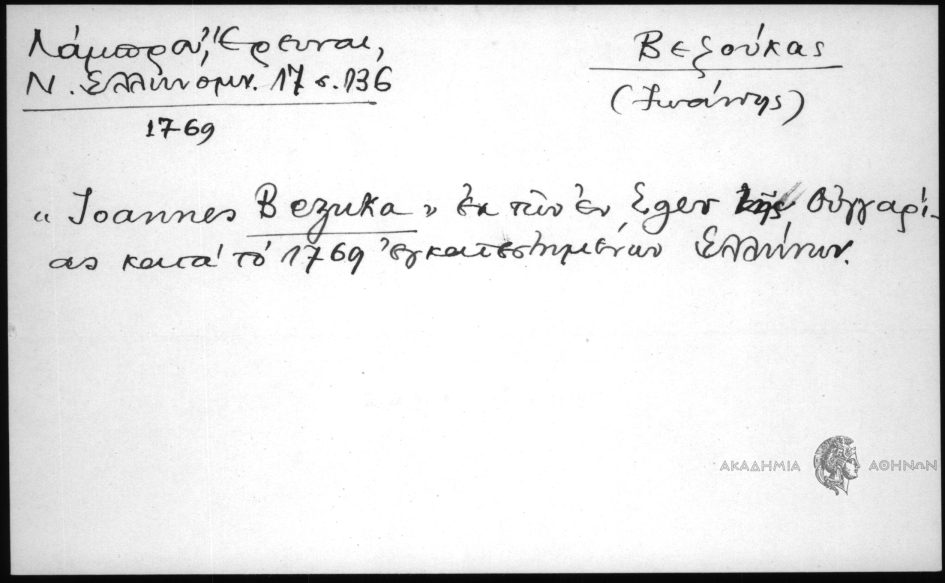 Λάμπρου, Έρευναι,
Ν. Ελληνομν. 17 σ. 136
1769
Βεζούκας
(Ιωάννης)
"Ioannes Bezuka" ἐκ τῶν ἐν Έγερ τῆς Οὑγγαρί-
ας κατά τό 1769 ἐγκατεστημένων Ελλήνων.
ΑΚΑΔΗΜΙΑ ΑΘΗΝΩΝ